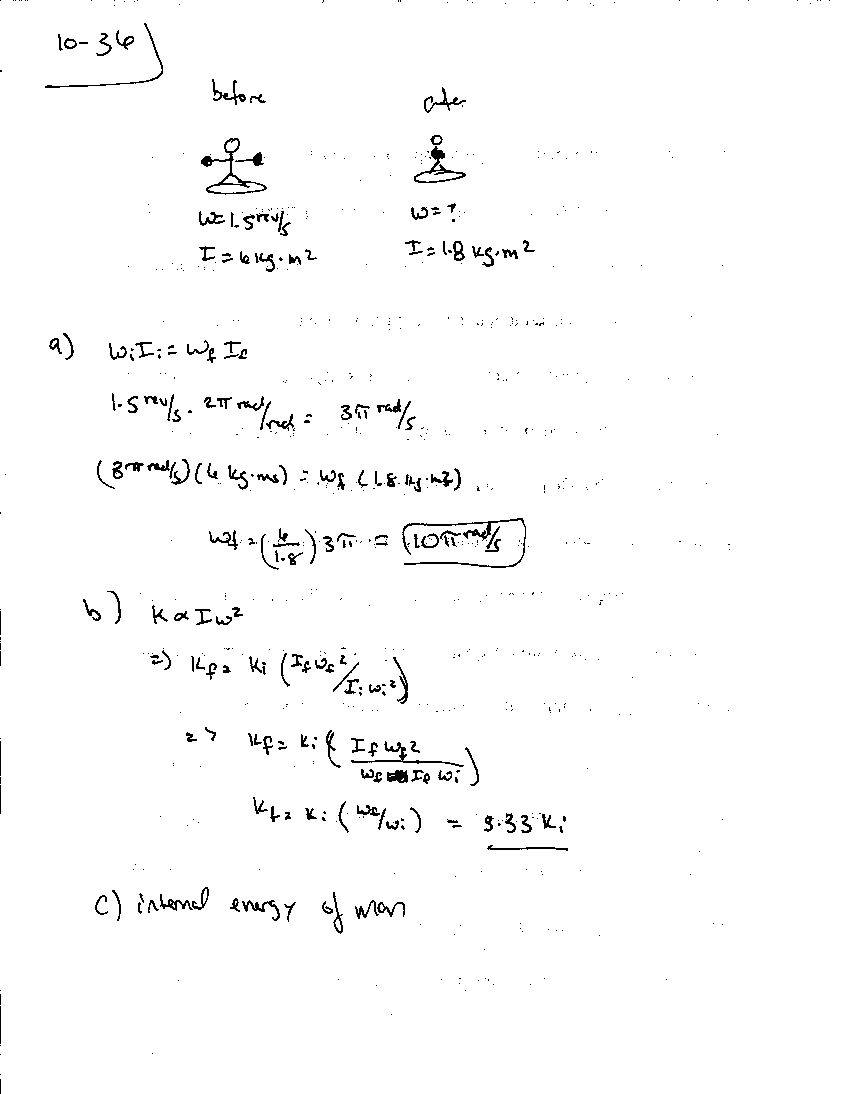 10-36
before after
ω=1.5 rev/s ω=?
I=6 kg·m² I=1.8 kg·m²
a) ωiIi = ωf If
1.5 rev/s · 2π rad/rad = 3π rad/s
(3π rad/s)(6 kg·m²) = ωf (1.8 kg·m²)
ωf = (6/1.8) 3π = 10π rad/s
b) K ∝ Iω²
=) Kf = Ki (Ifωf²/Iiωi²)
=> Kf = Ki (Ifωf²/ωf If ωi)
Kf = Ki (ωf/ωi) = 3.33 Ki
c) internal energy of man